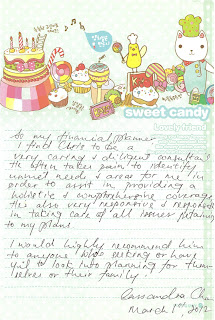 sweet candy
lovely friend
To my financial planner
I find Chris to be a
very caring & diligent consultant
He often takes pain to identify
unmet needs & areas for me in
order to assist in providing a
holistic & comprehensive coverage.
He's also very responsive & responsible
in taking care of all issues pertaining
to my plans.
I would highly recommend him
to anyone who seeking or have
yet to look into planning for them-
selves or their family.
Cassandra
March 1st, 2012